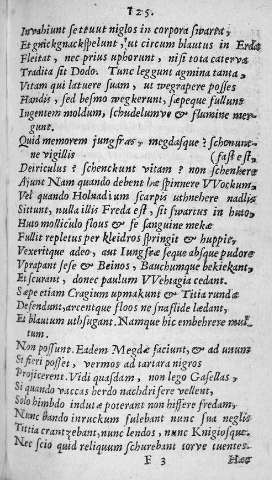 125.
Invahiunt settuut niglos in corpora swarta,
Et gnickgnackspelunt, ut circum blautus in Erda
Fleitat, nec prius upborunt, nisi tota caterva
Tradita sit Dodo. Tunc leggunt agmina tanta
Vitam qui latuere suam, ut wegrapere posses
Handis, sed besmo wegkerunt, sæpeque fullunt
Ingentem moldum, schudeluntve & flumine mer-
gunt.
Quid memorem jungfras, megdasque? schonunt-
ne vigillis (fast est,
Deiriculus? schenckunt vitam? non schenkere
Ajunt Nam quando debent hæ spinnere VVockum
Vel quando Holwadium scarpis uthnehere nadlis
Sittunt, nulla illis Freda est, sit swartus in huto,
Huto molliculo flous & se sanguine mekat
Fullit repletus per kleidros springit & huppit,
Vexeritque adeo, aut Iungfræ seque absque pudore
Vprapant sese & Beinos, Bauchumque bekiekant,
Et scurant, donec paulum VVehagia cedant.
Sæpe etiam Cragium upmakunt & Titia runda
Defendunt, arcentque floos ne snaflide lædant,
Et blautum uthsugant. Namque hic embehrere mul-
tum,
Non possunt. Eadem Megdæ faciunt, & ad unum
Si fieri posset, vermos ad tartara nigros
Projicerent. Vidi quasdam, non lego Gasellas,
Si quando vaccas herdo nachdrifere vellent,
Solo himbdo indutæ poterant non hissere fredam,
Nunc Bando inruckum fulebant nunc sua neglis
Titia crantzebant, nunc lendos, nunc Knigiosque.
Nec scio quid reliquum schurebant torve tuentes.
F 3 Hæc